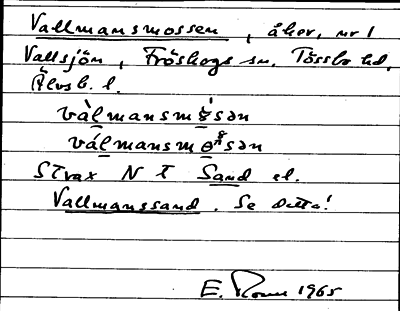 Vallmansmossen, åker, nr 1
Vallsjön, Fröskogs sn, Tössbo hd,
Älvsb. l.
vàl̲mansm
vál̲mansm
Strax N t Sand el.
Vallmanssand. Se detta!
E. 1965